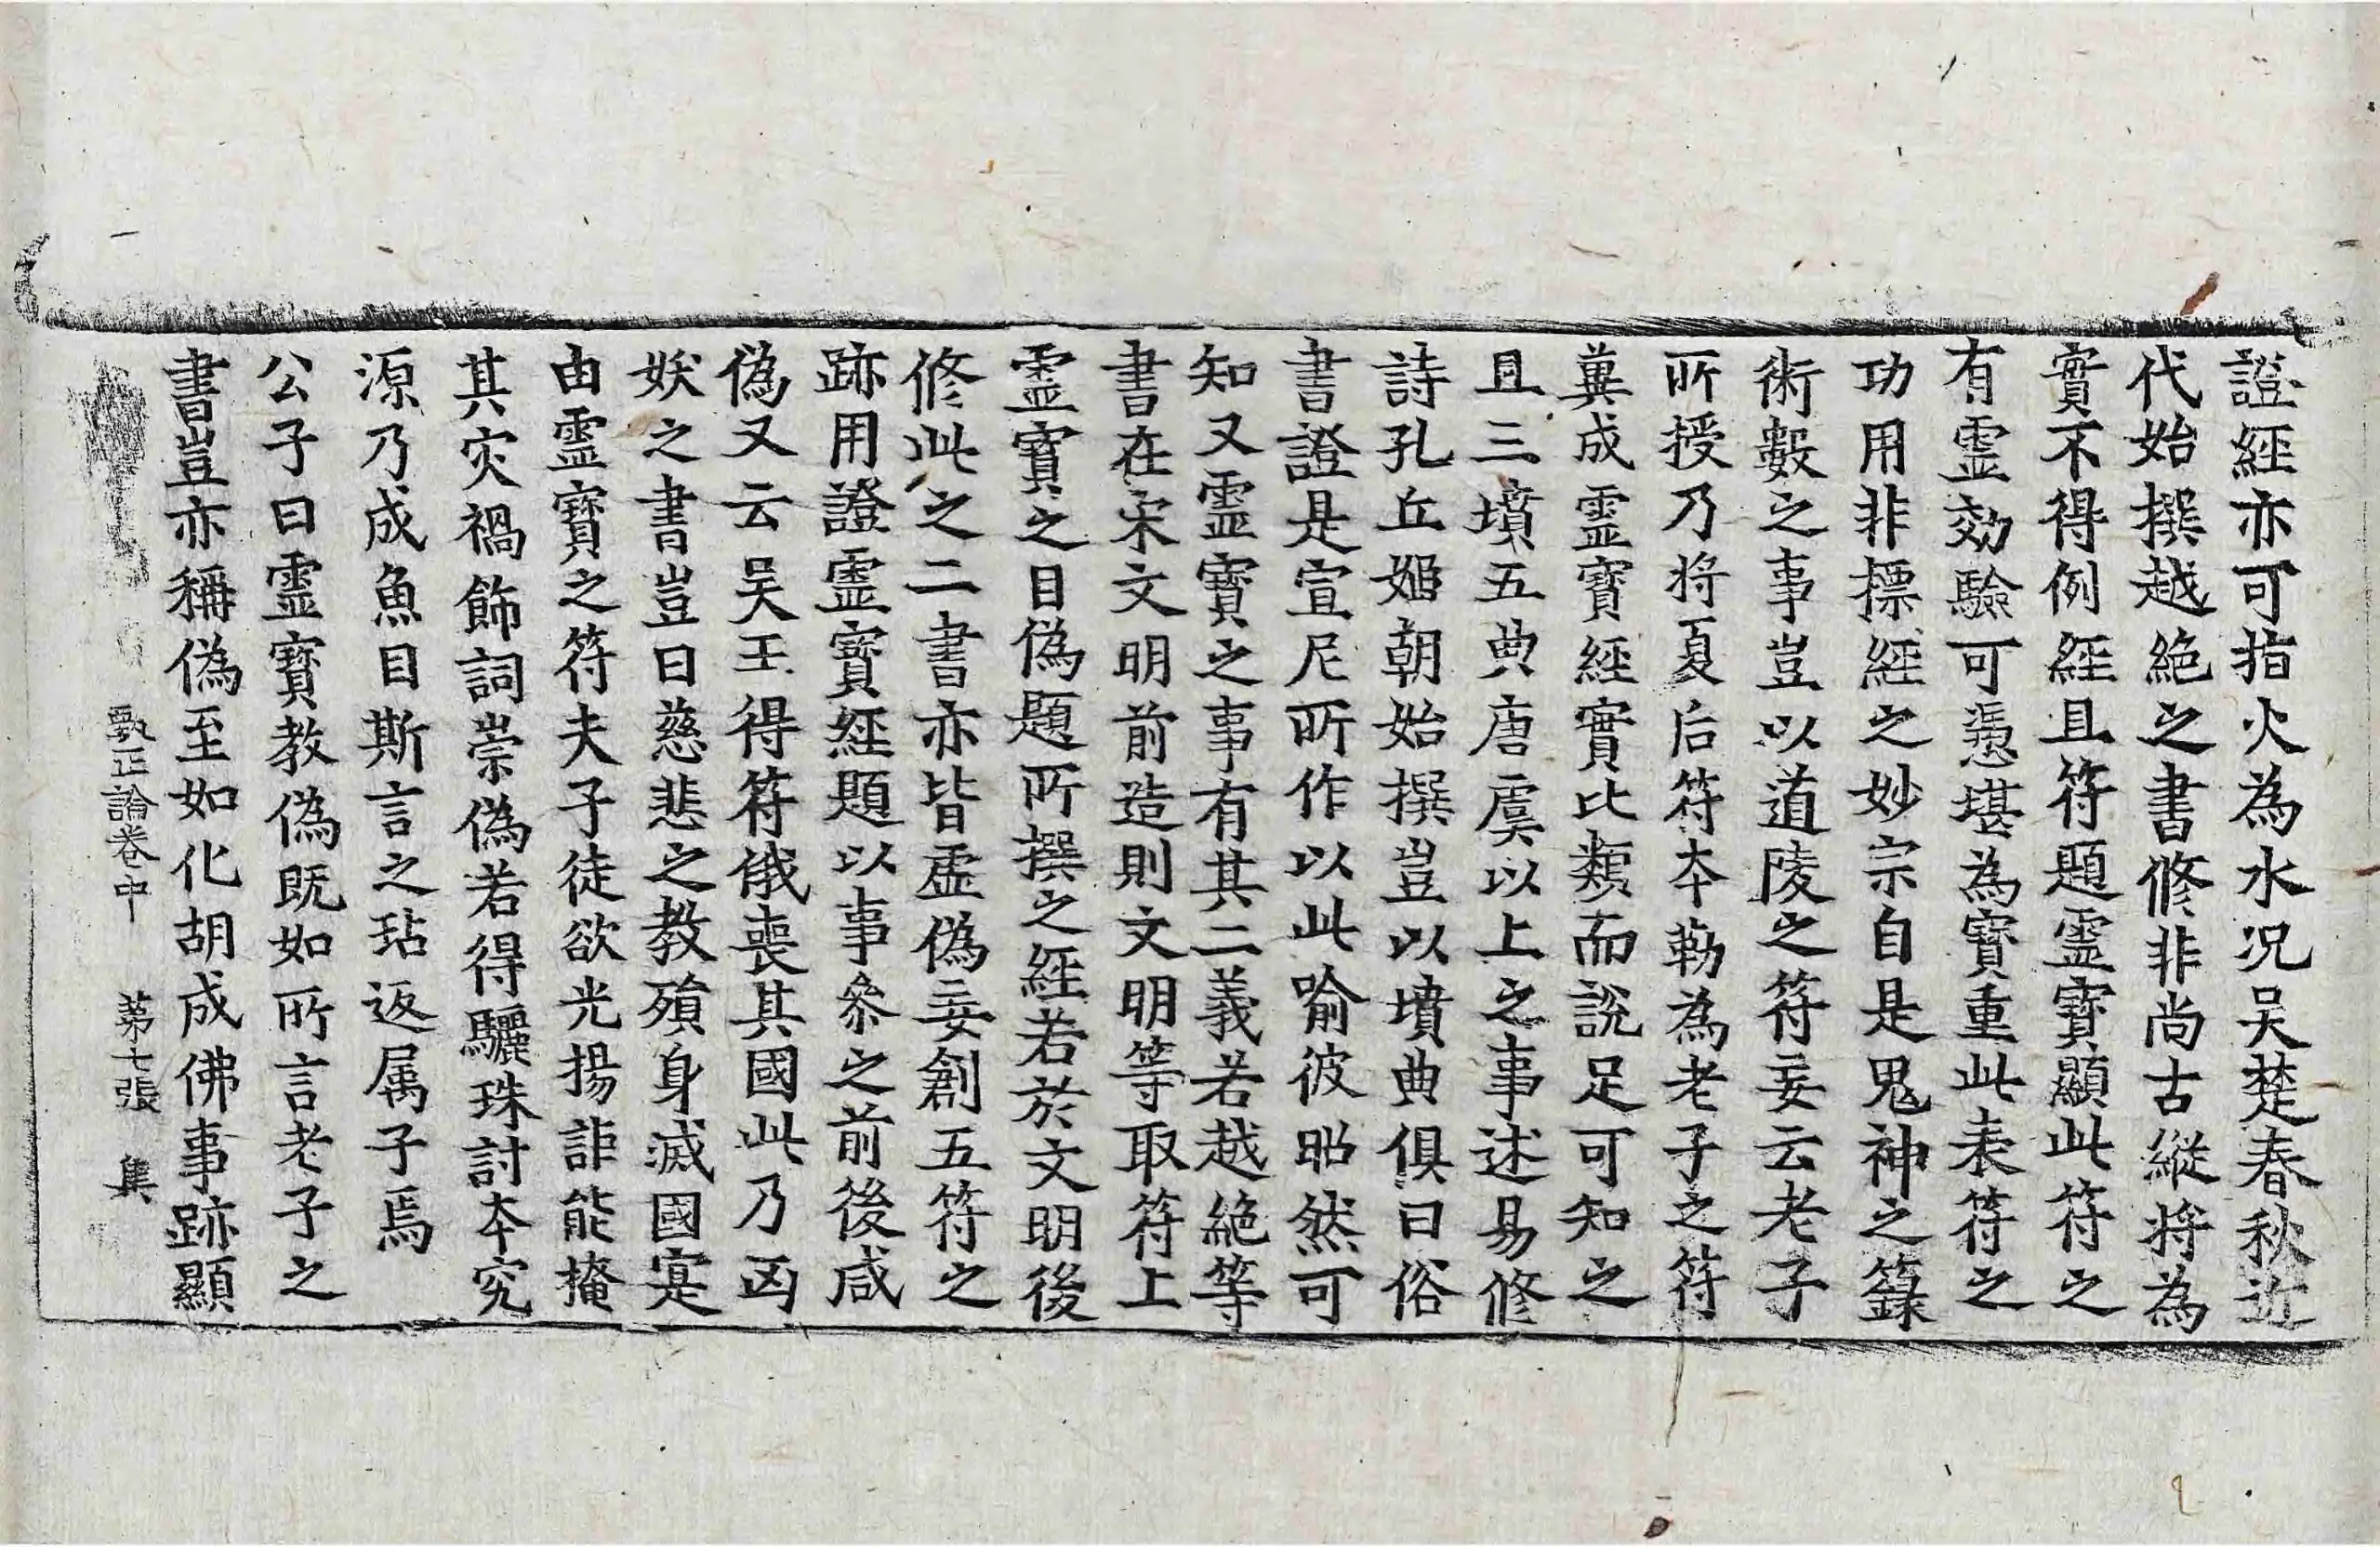 證經亦可指火為水况吴楚春秋近
代始撰越絕之書修非尚古縱将為
實不得例經且符題靈寶顯此符之
有靈効驗可憑堪為寶重此表符之
功用非摽經之妙宗自是鬼神之籙
術數之事豈以道陵之符妄云老子
所授乃将夏后符夲勒為老子之符
兾成靈寶經實比類而說足可知之
且三墳五典唐虞以上之事述易修
詩孔丘姬朝始撰豈以墳典俱曰俗
書證是宣尼所作以此喻彼昭然可
知又靈寶之事有其二義若越絕等
書在宋文明前造則文明等取符上
靈寶之目偽題所撰之經若於文明後
修此之二書亦皆虛偽妄創五符之
跡用證靈寶經題以事叅之前後咸
偽又云吴王得符俄喪其國此乃凶
妖之書豈曰慈悲之教殞身滅國寔
由靈寶之符夫子徒欲光揚詎能掩
其灾禍飾詞崇偽若得驪珠討夲究
源乃成魚目斯言之玷返属子焉
公子曰靈寶教偽既如所言老子之
書豈亦稱偽至如化胡成佛事跡顯
甄正論卷中　第七張　集